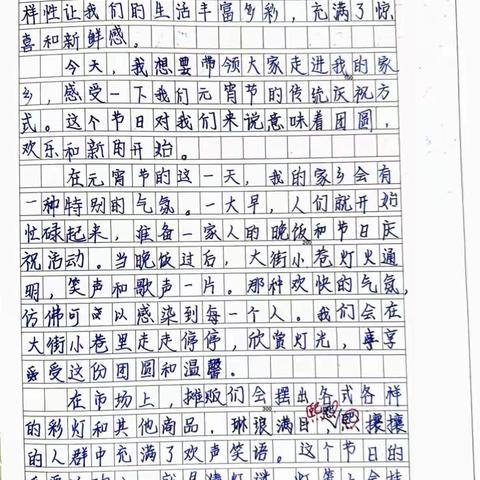 样性让我们的生活丰富多彩，充满了惊
喜和新鲜感。
今天，我想要带领大家走进我的家
乡，感受一下我们元宵节的传统庆祝方
式。这个节日对我们来说意味着团圆，
欢乐和新的开始。
在元宵节的这一天，我的家乡会有
一种特别的气氛。一大早，人们就开始
忙碌起来，准备一家人的晚饭和节日庆
祝活动。当晚饭过后，大街小巷灯火通
明，笑声和歌声一片。那种欢快的气氛，
仿佛可以感染到每一个人。我们会在
大街小巷里走走停停，欣赏灯光，享享
受这份团圆和温馨。
在市场上，摊贩们会摆出各式各样
的彩灯和其他商品，琳琅满目，熙熙攘攘
的人群中充满了欢声笑语。这个节日的